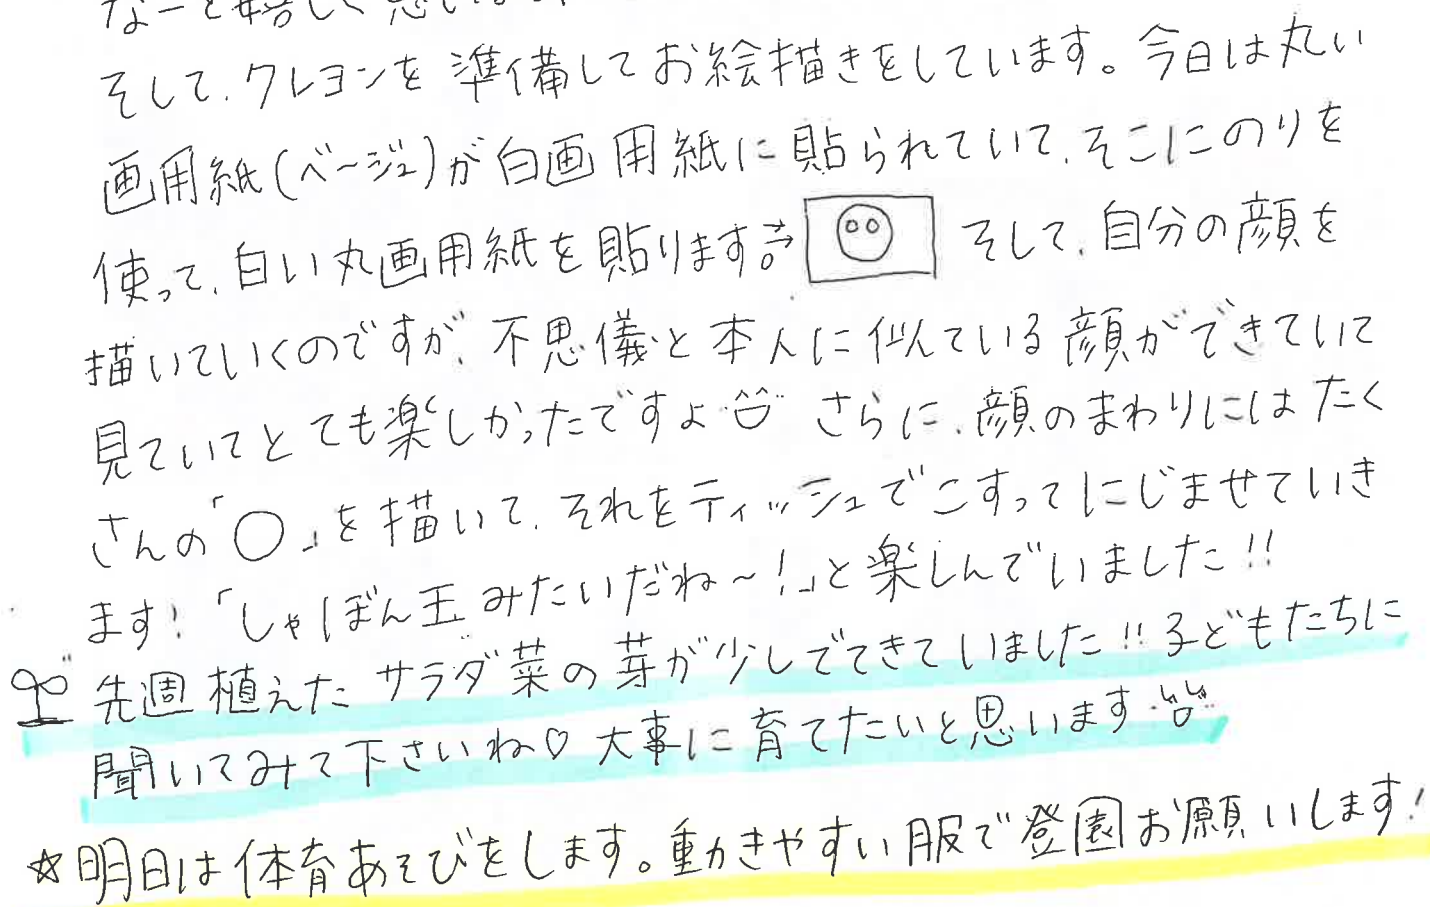 なーと嬉しく思い
そして、クレヨンを準備してお絵描きをしています。今日は丸い
画用紙(ベージュ)が白画用紙に貼られていて、そこにのりを
使って、白い丸画用紙を貼ります。→ そして、自分の顔を
描いていくのですが、不思儀と本人に似ている顔ができていて
見ていてとても楽しかったですよ さらに、顔のまわりにはたく
さんの「○」を描いて、それをティッシュでこすってにじませていき
ます!「しゃぼん玉みたいだね~!」と楽しんでいました!!
先週植えたサラダ菜の芽が少しでてきていました!!子どもたちに
聞いてみて下さいね♡ 大事に育てたいと思います
☆明日は体育あそびをします。動きやすい服で登園お願いします!